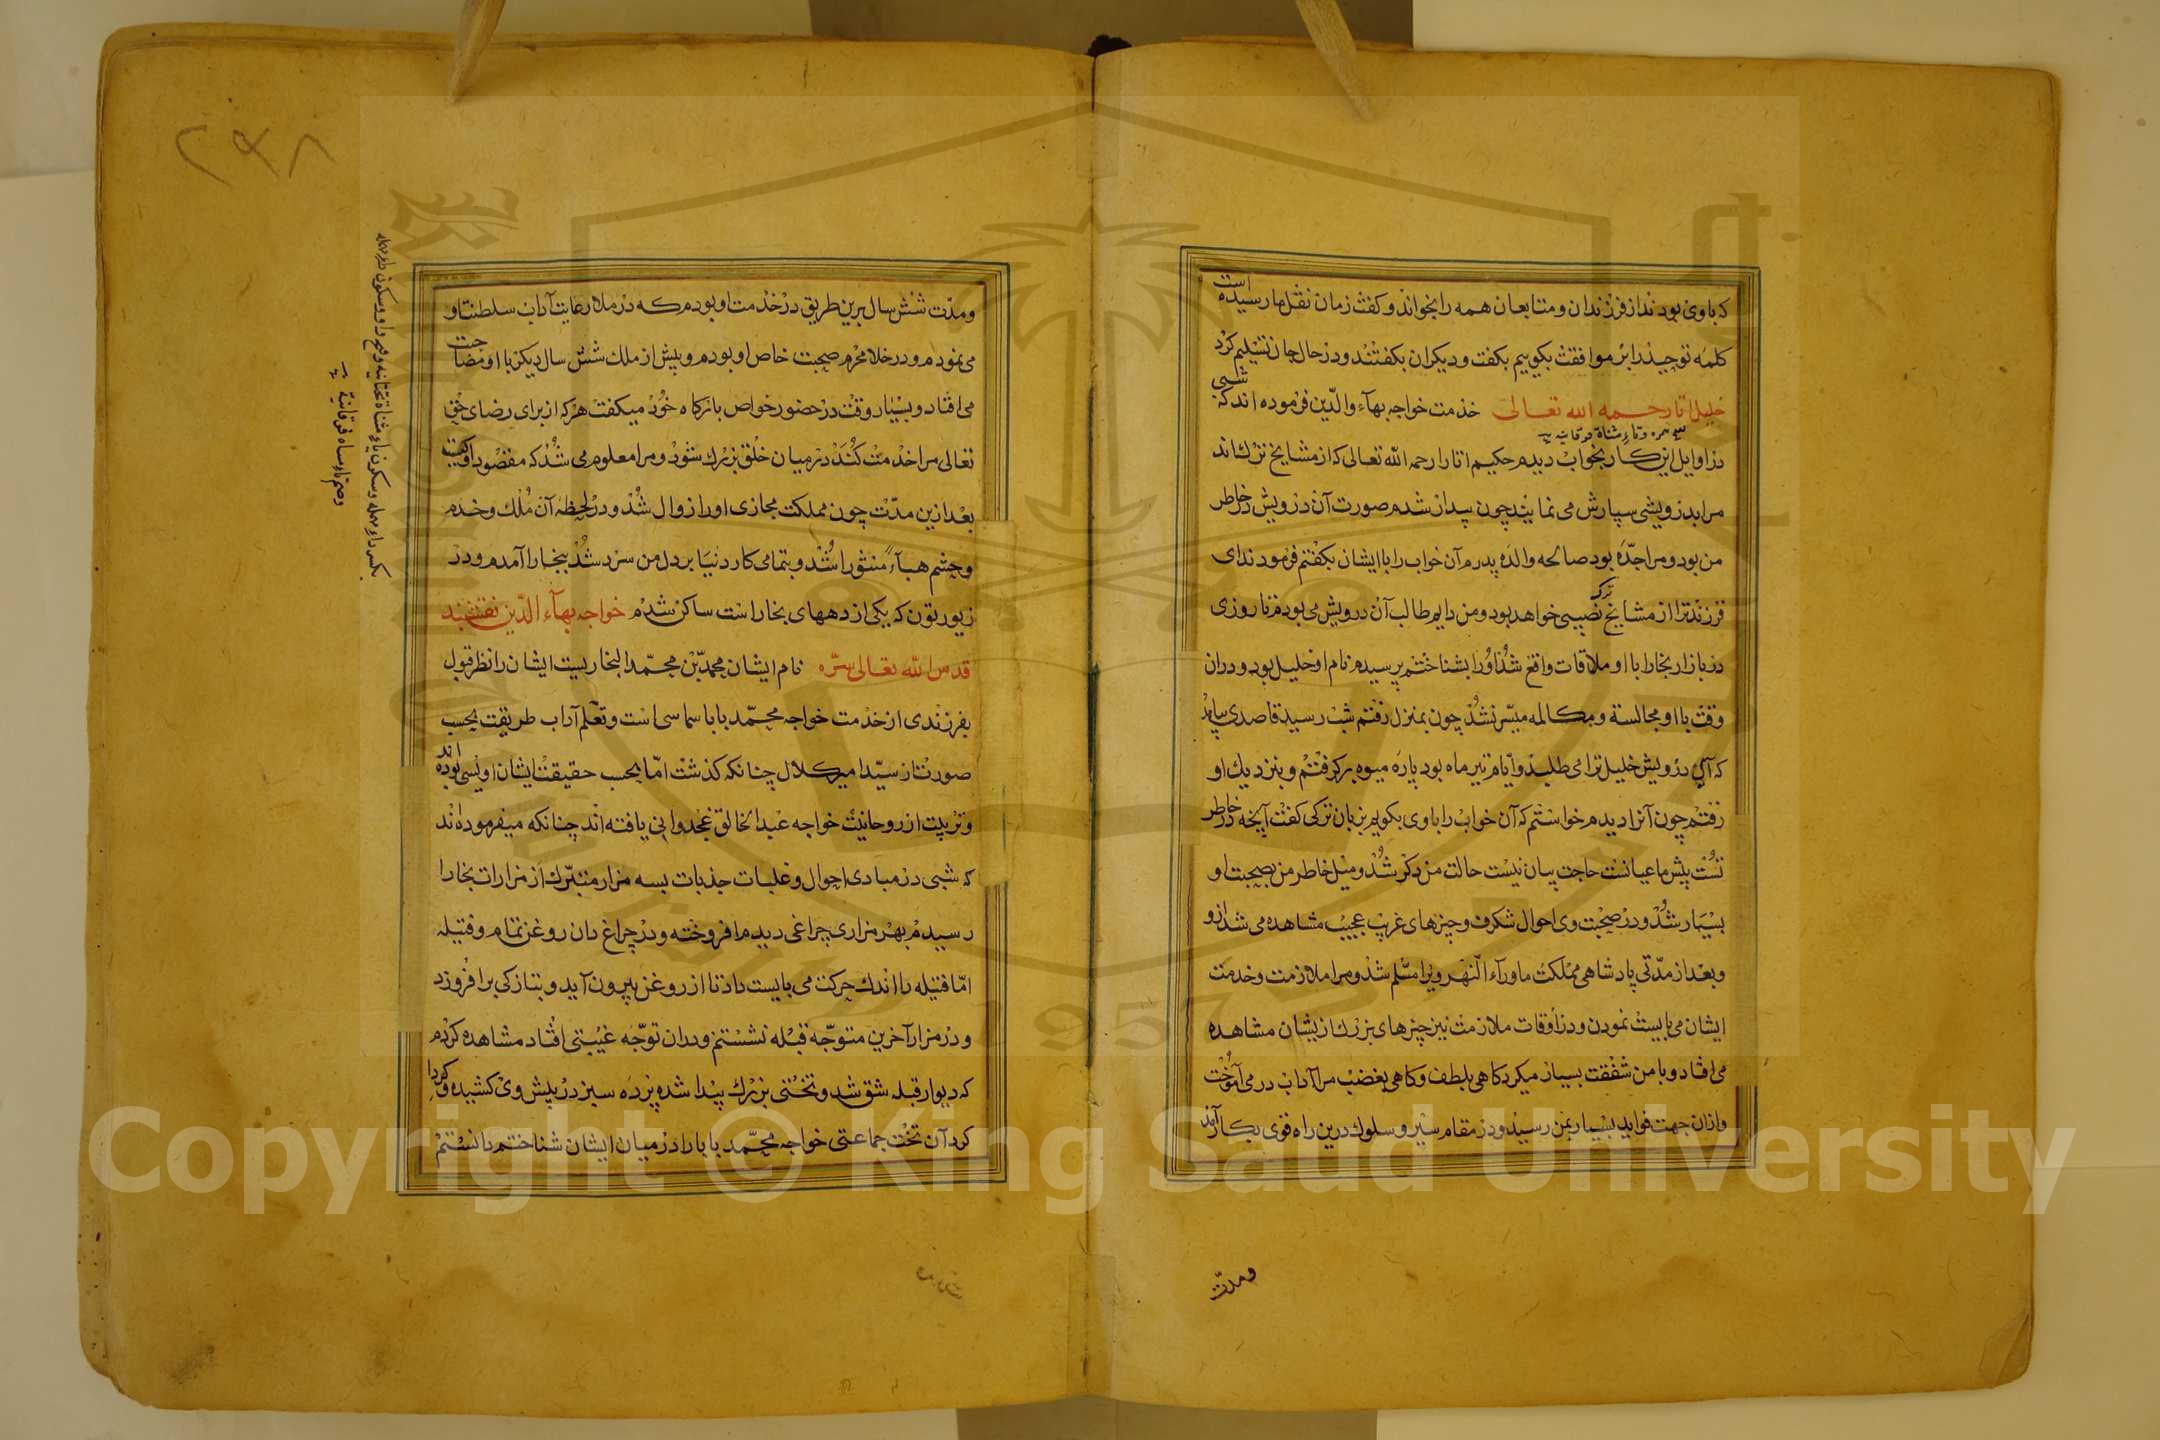 که باوی بودند از فرزندان و متابعان همه را بخواند و کفت زمان نقل ما رسیده است
کلمهٔ توحید را بر موافقت بکوییم بکفت و دیکران بکفتند و در حال جان تسلیم کرد
خلیل اتا رحمه الله تعالی خدمت خواجه بهآء والدین فرموده اند که شبی
در اوایل این کار بخواب دیدم حکیم اتا را رحمه الله تعالی که از مشایخ ترک اند
مرا بدرویشی سپارش می نمایند چون بیدار شدم صورت آن درویش در خاطر
من بود و مرا جدّه بود صالحه والده پدرم آن خواب را با ایشان بکفتم فرمودند ای
فرزند ترا از مشایخ ترک نصیبی خواهد بود و من دایم طالب آن درویش می بودم تا روزی
در بازار بخارا با او ملاقات واقع شد او را بشناختم پرسیدم نام او خلیل بود و در ان
وقت با او مجالسة و مکالمه میسر نشد چون بمنزل رفتم شب رسید قاصدی بیامد
که آن درویش خلیل ترا می طلبد و ایام تیر ماه بود پاره میوه برکرفتم و بنزدیک او
رفتم چون آنرا دیدم خواستم که آن خواب را باوی بکویم بزبان ترکی کفت آنچه در خاطر
تست پیش ما عیانست حاجت بیان نیست حالت من دکر شد و میل خاطر من بصحبت او
بسیار شد و در صحبت وی احوال شکرف و چیزهای غریب عجیب مشاهده می شد ازو
و بعد از مدّتی پادشاهی مملکت ماورآء النهر ویرا مسلم شد و مرا ملازمت و خدمت
ایشان می بایست نمودن و در اوقات ملازمت نیز چیزهای بزرک از یشان مشاهده
می افتاد و با من شفقت بسیار میکرد کاهی بلطف و کاهی بغضب مرا آداب در می آموخت
و ازان جهت فواید بسیار بمن رسید و در مقام سیر و سلوک درین راه قوی بکار آمد
ومدّت
و مدّت شش سال برین طریق در خدمت او بودم که در ملا رعایت آداب سلطنت او
می نمودم و در خلا محرم صحبت خاص او بودم و پیش از ملک شش سال دیکر با او مصاحبت
می افتاد و بسیار وقت در حضور خواص بارکاه خود میکفت هر که از برای رضای حق
تعالی مرا خدمت کند در میان خلق بزرک شود و مرا معلوم می شد که مقصود او کیست
بعد ازین مدّت چون مملکت مجازی او را زوال شد و در لحظه آن ملک و خدم
و چشم هبآءً منثورا شد و بتمامی کار دنیا بر دل من سرد شد ببخارا آمدم و در
زیورتون که یکی از دههای بخار است ساکن شدم خواجه بهآء الدّین نقشبند
قدس الله تعالی سرّه نام ایشان محمد بن محمد البخاریست ایشان را نظر قبول
بفرزندی از خدمت خواجه محمّد بابا سماسی است و تعلم آداب طریقت بحسب
صورت از سیّد امیر کلال چنانکه کذشت امّا بحسب حقیقت ایشان اویسی بوده اند
و تربیت از روحانیت خواجه عبد الخالق غجدوانی یافته اند چنانکه میفرموده اند
که شبی در مبادی احوال و غلبات جذبات بسه مزار متبرک از مزارات بخارا
رسیدم بهر مزاری چراغی دیدم افروخته و در چراغ دان روغن تمام و فتیله
امّا فتیله را اندک حرکت می بایست داد تا از روغن بیرون آید و بتازکی بر افروزد
و در مزار آخرین متوجّه قبله نشستم و دران توجّه غیبتی افتاد مشاهده کردم
که دیوار قبله شق شد و تختی بزرک پیدا شد پرده سبز در پیش وی کشیده و کردا
کرد آن تخت جماعتی خواجه محمّد بابا را در میان ایشان شناختم دانستم
Copyright © King Saud University
1957